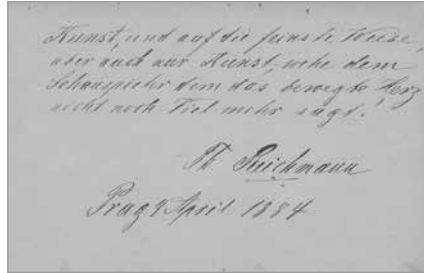 Kunst, und auf die feinste Weise,
aber auch nur Kunst, wehe dem
Schauspieler dem das bewegte Herz
nicht noch viel mehr sagt.
Th. Reichmann
Prag 4 April 1884